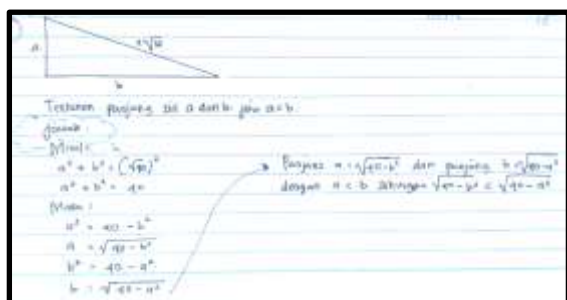 a
b
Tentukan panjang sisi a dan b jika a < b.
Jawab :
Misal :
a² + b² = (√40)²
a² + b² = 40
Maka :
a² = 40 - b²
a = √40 - b²
b² = 40 - a²
b = √40 - a²
Panjang a = √40-b² dan panjang b = √40-a²
dengan a < b sehingga √40 - b² < √40 - a²